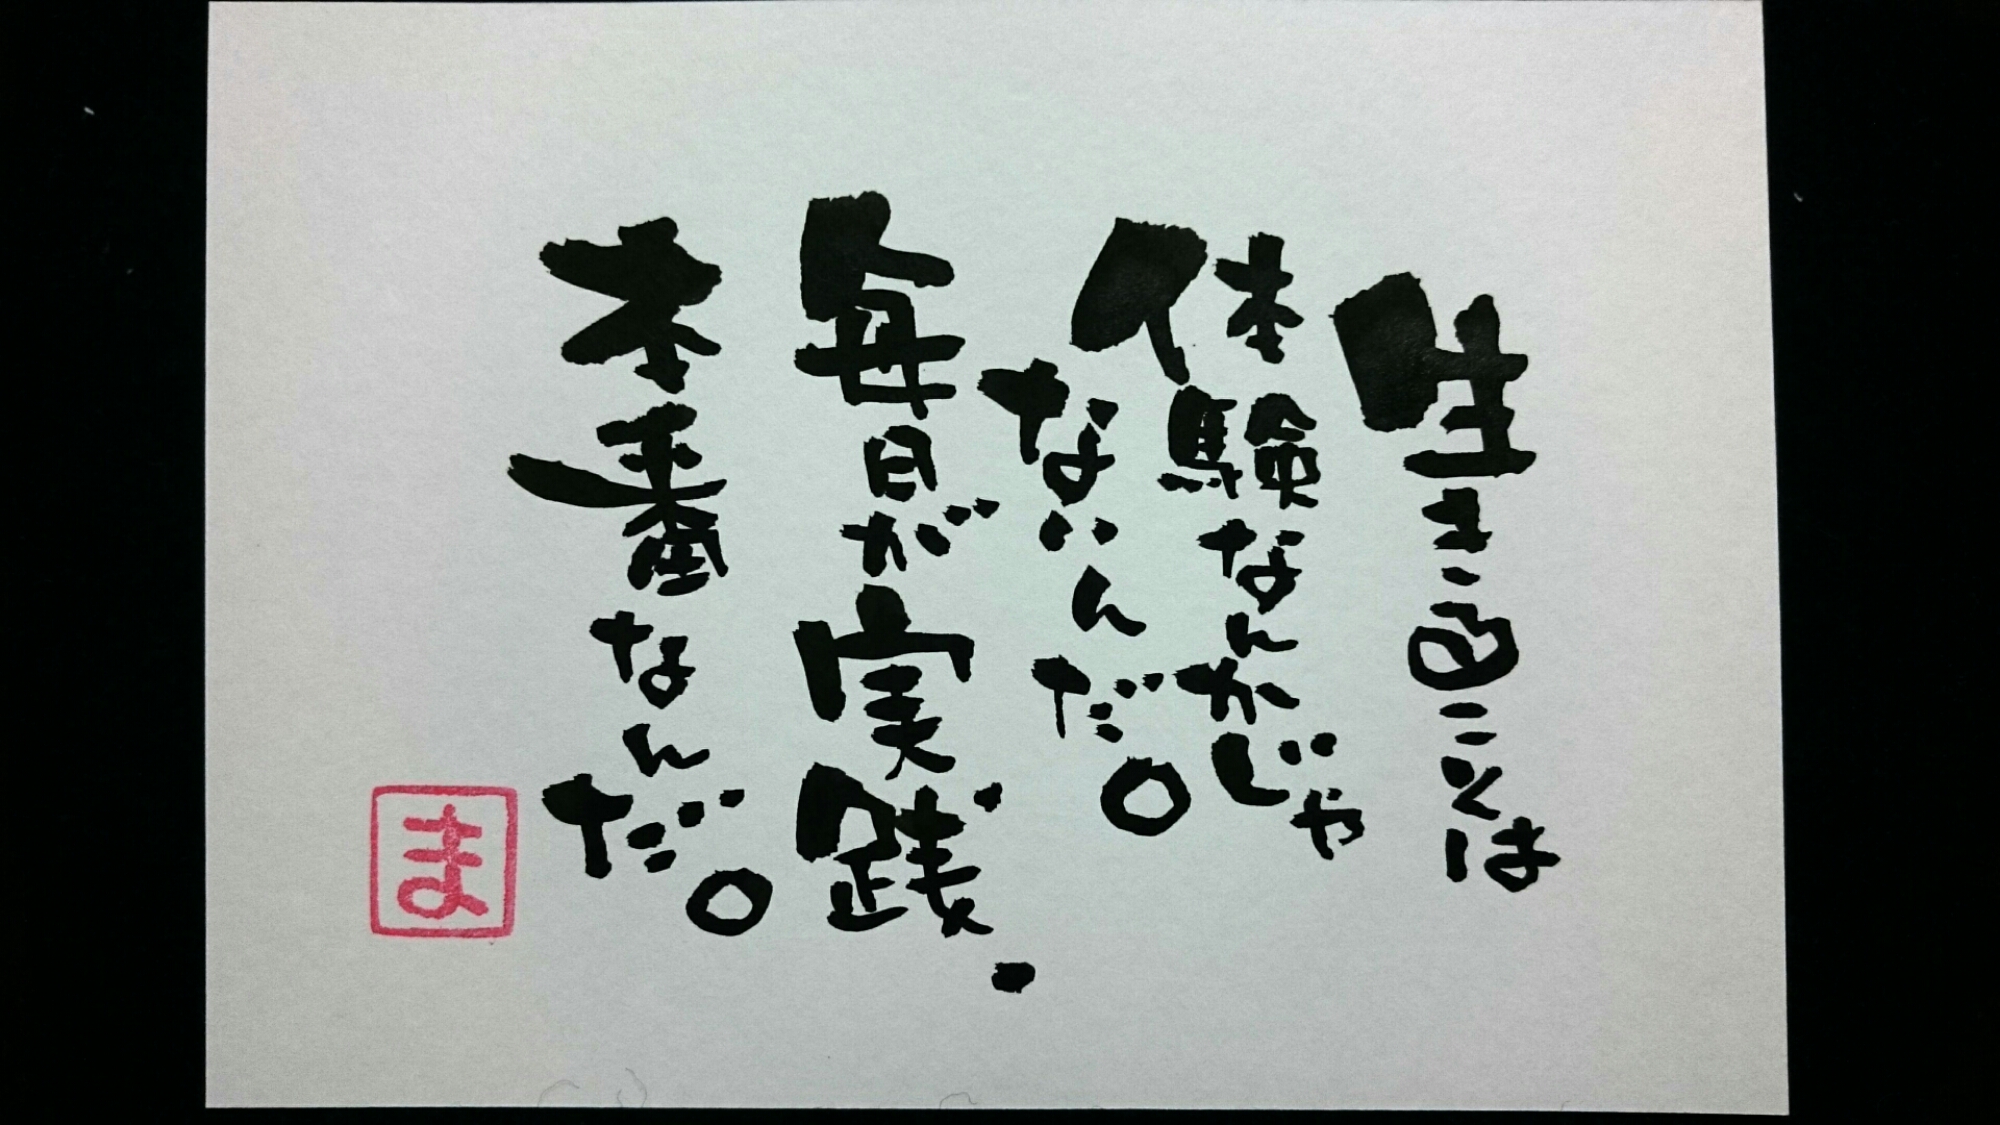 生きることは
体験なんかじゃ
ないんだ。
毎日が実践、
本番なんだ。
ま